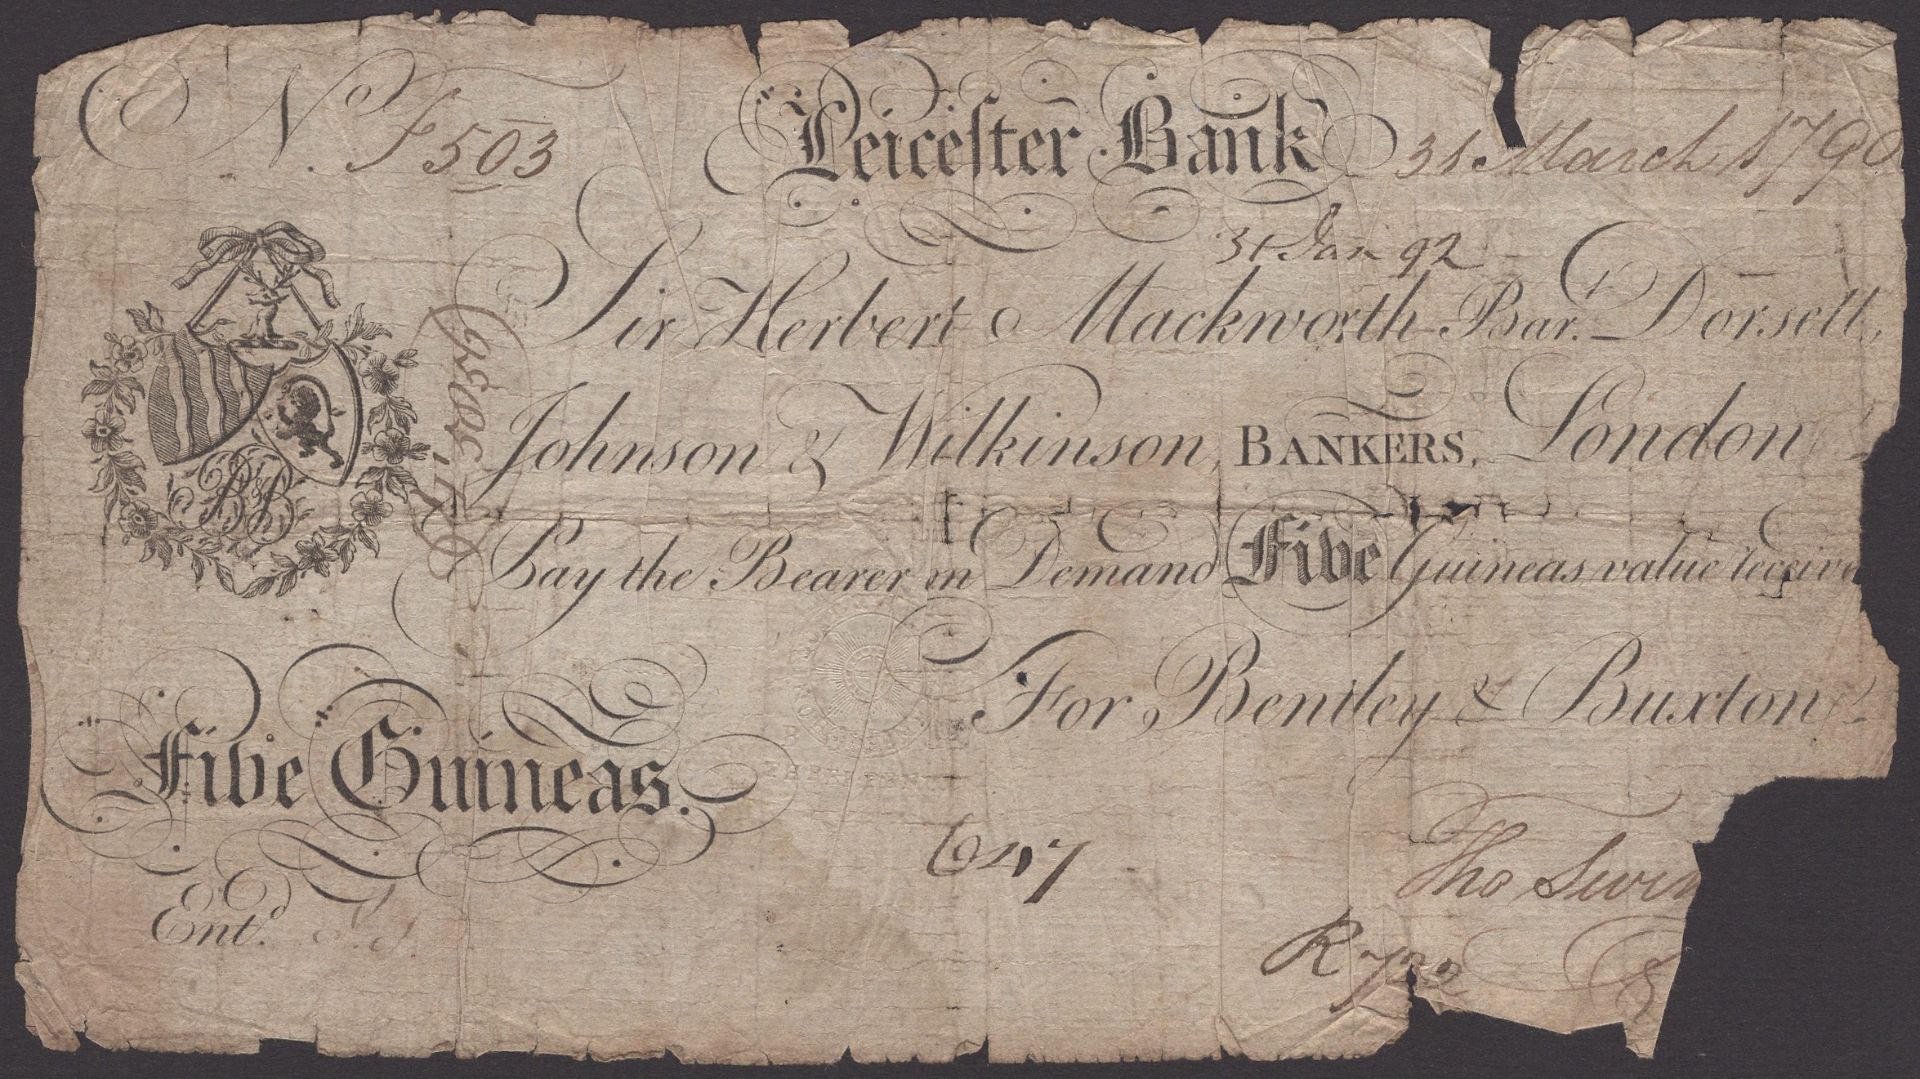 No. F503 Leicester Bank 31 March 1790
31 Jan 92
Sir Herbert Mackworth Bar. Dorsett,
Johnson & Wilkinson, BANKERS, London
Pay the Bearer on Demand Five Guineas value receive
For Bentley & Buxton
Five Guineas.
Entd.
Tho Swin